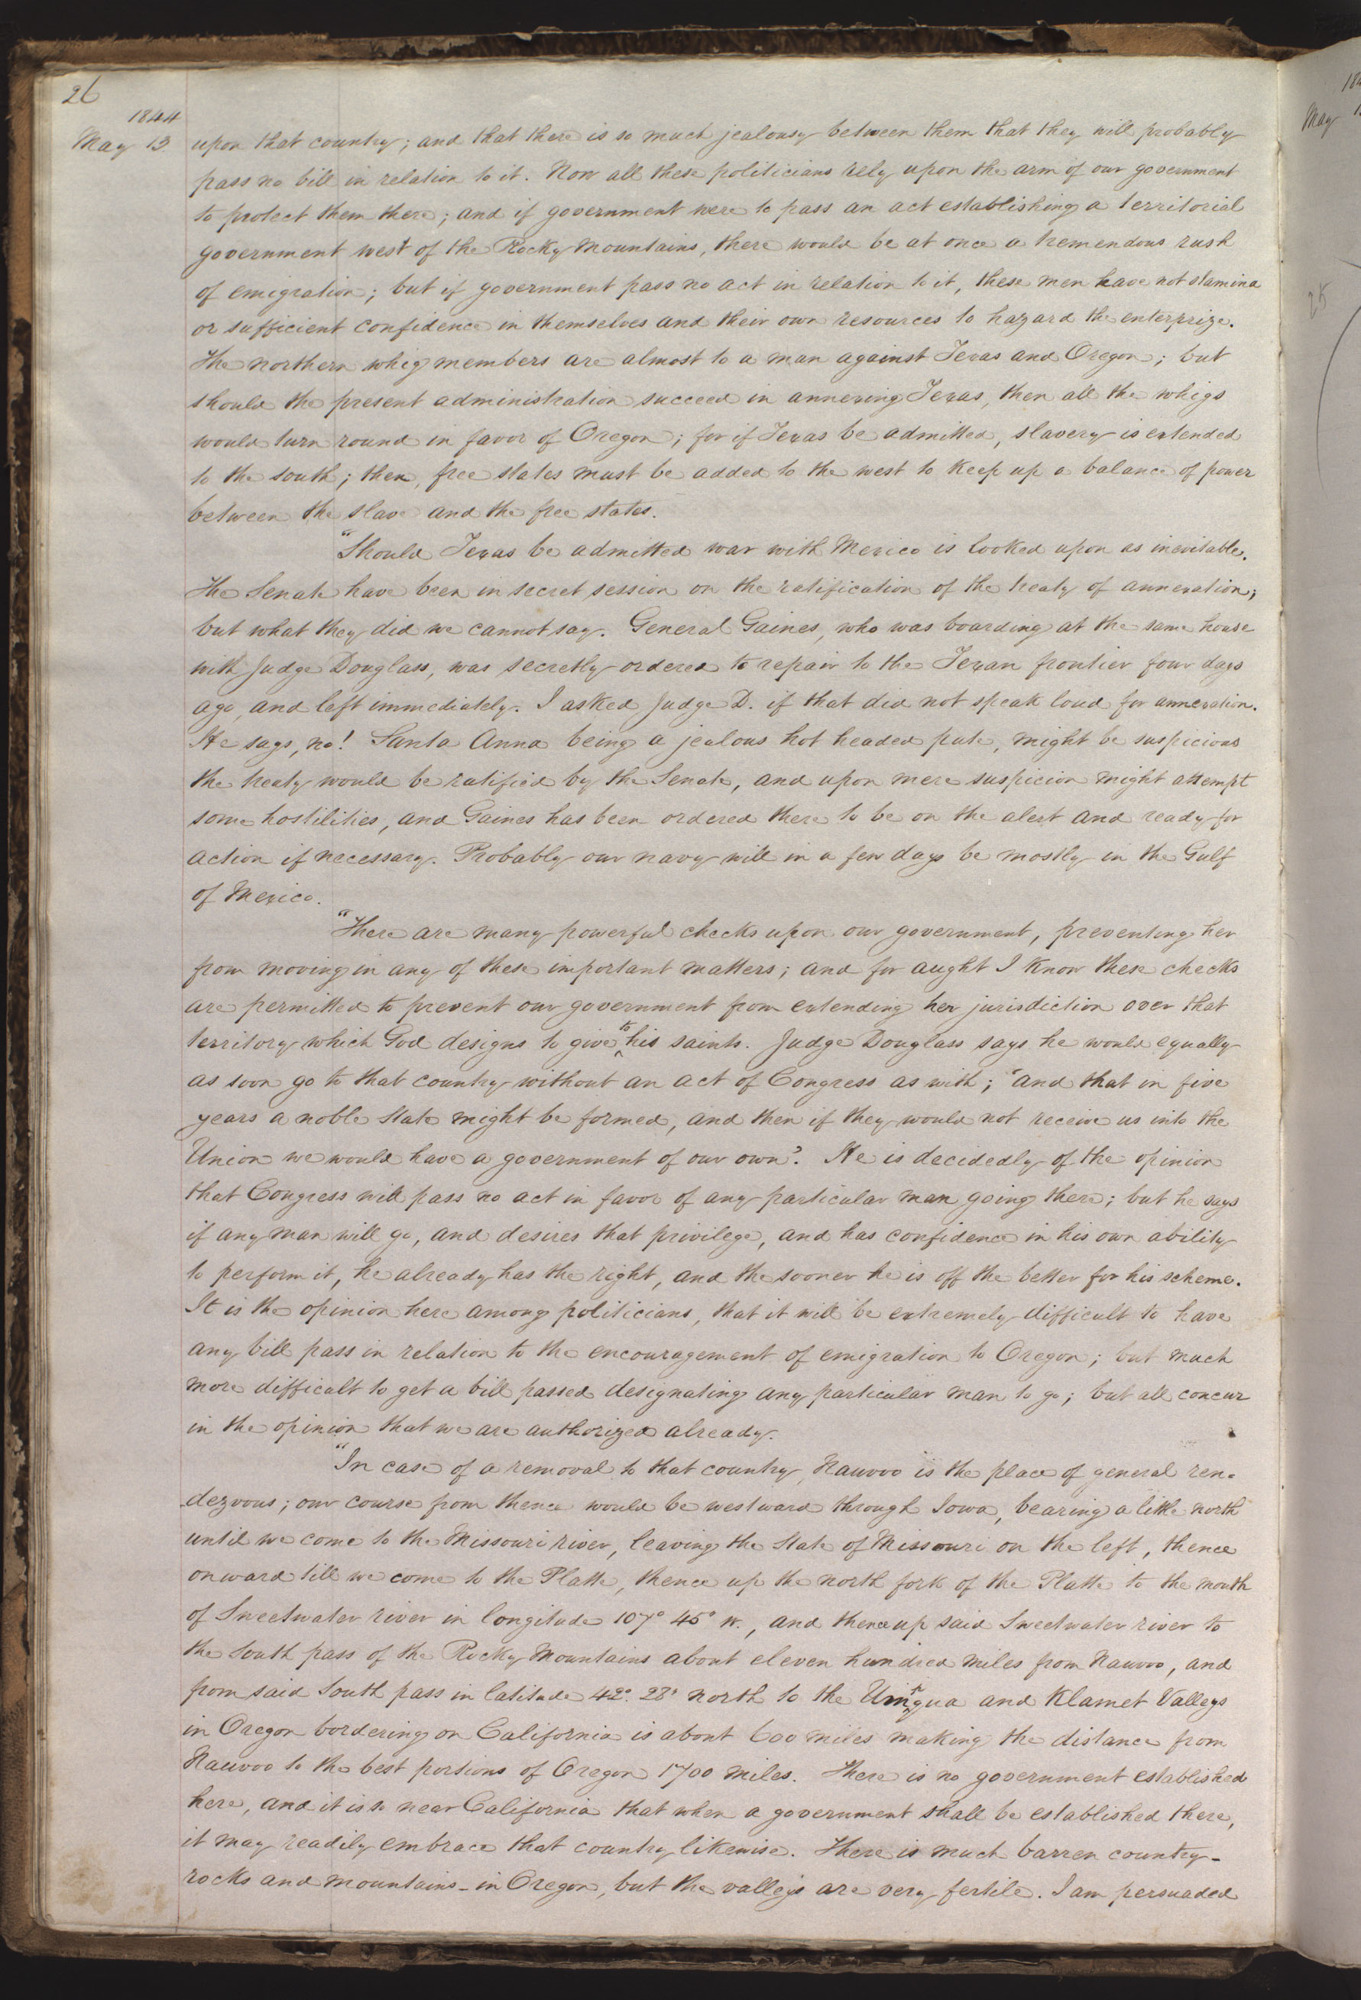 26
1844
May 13 upon that country; and that there is so much jealousy between them that they will probably
pass no bill in relation to it. Now all these politicians rely upon the arm of our government
to protect them there; and if government were to pass an act establishing a territorial
government west of the Rocky Mountains, there would be at once a tremendous rush
of emigration; but if government pass no act in relation to it, these men have not stamina
or sufficient confidence in themselves and their own resources to hazard the enterprize.
The northern whig members are almost to a man against Texas and Oregon; but
should the present administration succeed in annexing Texas, then all the whigs
would turn round in favor of Oregon; for if Texas be admitted, slavery is extended
to the south; then, free states must be added to the west to keep up a balance of power
between the slave and the free states.
"Should Texas be admitted war with Mexico is looked upon as inevitable.
The Senate have been in secret session on the ratification of the treaty of annexation;
but what they did we cannot say. General Gaines, who was boarding at the same house
with Judge Douglass, was secretly ordered to repair to the Texan frontier four days
ago, and left immediately. I asked Judge D. if that did not speak loud for annexation.
He says, no! Santa Anna being a jealous hot headed pate, might be suspicious
the treaty would be ratified by the Senate, and upon mere suspicion might attempt
some hostilities, and Gaines has been ordered there to be on the alert and ready for
action if necessary. Probably our navy will in a few days be mostly in the Gulf
of Mexico.
"There are many powerful checks upon our government, preventing her
from moving in any of these important matters; and for aught I know these checks
are permitted to prevent our government from extending her jurisdiction over that
territory which God designs to give to his saints. Judge Douglass says he would equally
as soon go to that country without an act of Congress as with; 'and that in five
years a noble State might be formed, and then if they would not receive us into the
Union we would have a government of our own'. He is decidedly of the opinion
that Congress will pass no act in favor of any particular man going there; but he says
if any man will go, and desires that privilege, and has confidence in his own ability
to perform it, he already has the right, and the sooner he is off the better for his scheme.
It is the opinion here among politicians, that it will be extremely difficult to have
any bill pass in relation to the encouragement of emigration to Oregon; but much
more difficult to get a bill passed designating any particular man to go; but all concur
in the opinion that we are authorized already.
"In case of a removal to that country Nauvoo is the place of general ren-
dezvous; our course from thence would be westward through Iowa, bearing a little north
until we come to the Missouri river, leaving the State of Missouri on the left, thence
onward till we come to the Platte, thence up the north fork of the Platte to the mouth
of Sweetwater river in longitude 107° 45' W., and thence up said Sweetwater river to
the South pass of the Rocky Mountains about eleven hundred miles from Nauvoo, and
from said South pass in latitude 42°. 28' north to the Umpqua and Klamet Valleys
in Oregon bordering on California is about 600 miles making the distance from
Nauvoo to the best portions of Oregon 1700 miles. There is no government established
here, and it is so near California that when a government shall be established there,
it may readily embrace that country likewise. There is much barren country-
rocks and mountains- in Oregon, but the valleys are very fertile. I am persuaded
May
25